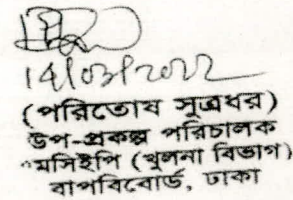 14/03/2022
(পরিতোষ সুত্রধর)
উপ-প্রকল্প পরিচালক
মসিইপি (খুলনা বিভাগ)
বাপবিবোর্ড, ঢাকা